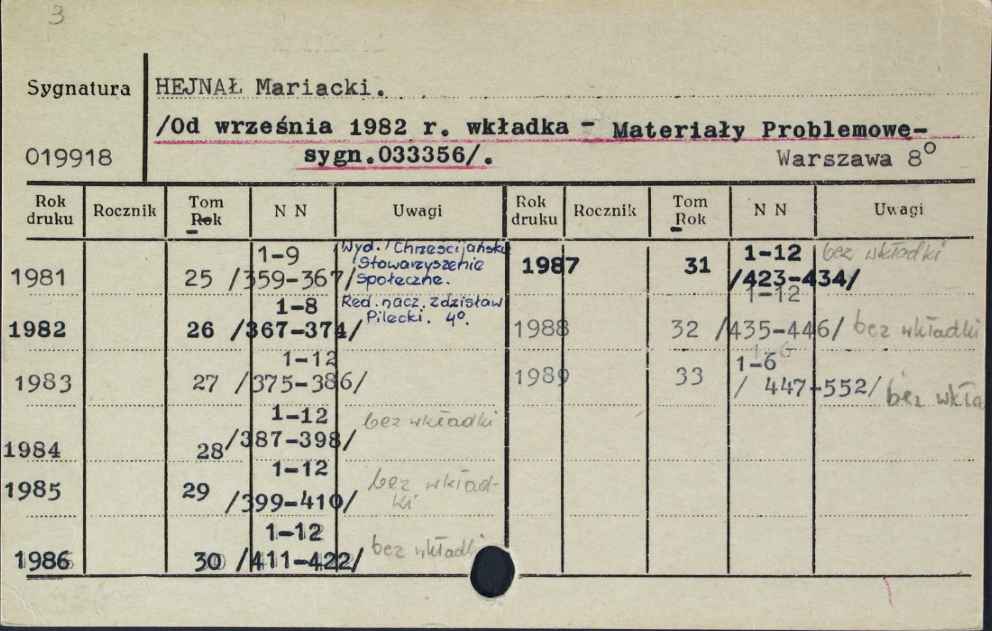 3
Sygnatura HEJNAŁ Mariacki.
/Od września 1982 r. wkładka - Materiały Problemowe-
019918 sygn.033356/. Warszawa 8°
Rok druku Rocznik Tom Rok N N Uwagi Rok druku Rocznik Tom Rok N N Uwagi
1981 25 1-9 /359-367/ Wyd. Chrześcijańskie Stowarzyszenie Społeczne.
1982 26 1-8 /367-374/ Red. nacz. Zdzisław Pilecki. 4°.
1983 27 1-12 /375-386/
1984 28 1-12 /387-398/ bez wkładki
1985 29 1-12 /399-410/ bez wkład-
ki
1986 30 1-12 /411-422/ bez wkładki
1987 31 1-12 /423-434/ bez wkładki
1988 32 1-12 /435-446/ bez wkładki
1989 33 1-6 / 447-552/ bez wkła